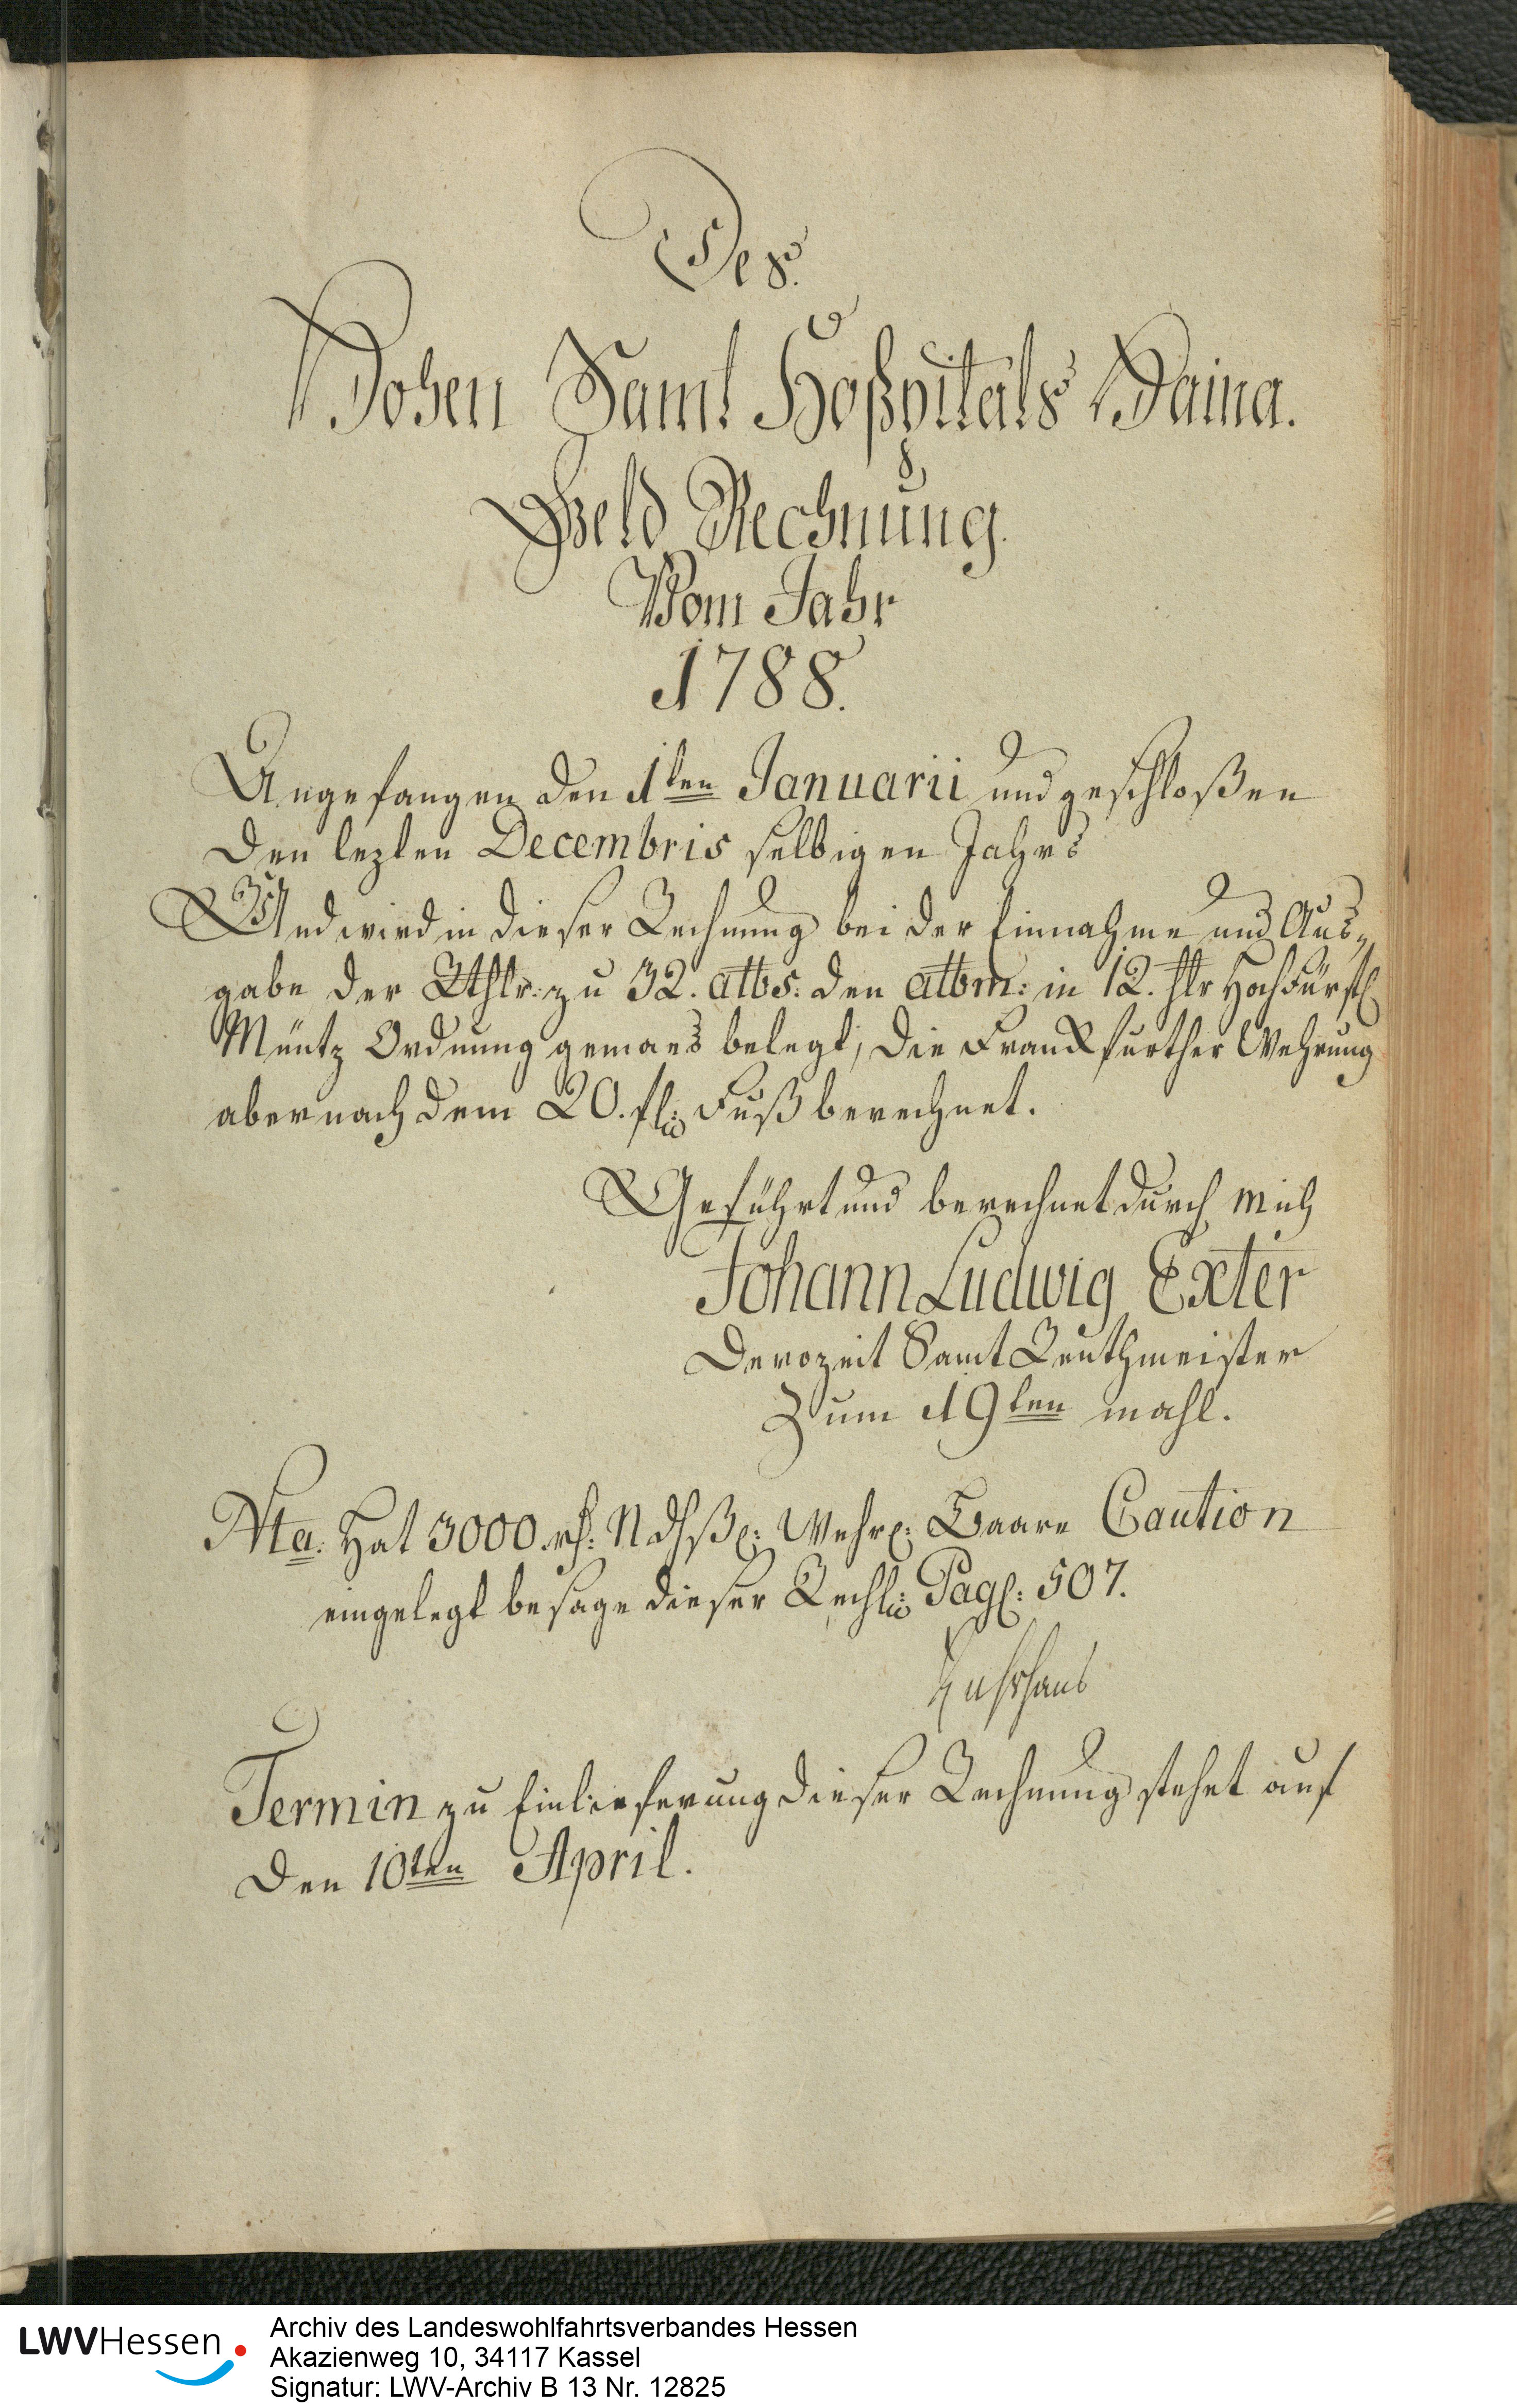 Des
Hohen Samt Hoßpitals Haina.
Geld Rechnung.
Vom Jahr
1788.
Angefangen den 1ten Januarii und geschloßen
den lezten Decembris selbigen Jahrs
Und wird in dieser Rechnung bei der Einnahme und Aus=
gabe der Rthlr: zu 32. albs: den albm: in 12. hlr Hochfürstl
Müntz Ordnung gemaes belegt, die Franckfurther Wehrung
aber nach dem 20. fl: Fuß berechnet.
Geführt und berechnet durch mich
Johann Ludwig Exter
Derozeit Samt Renthmeister
Zum 19ten mahl.
Nta. Hat 3000. rh: Wehr: Baare Caution
eingelegt besage dieser Rech: Pag: 507.
Termin zu Einlieferung dieser Rechnung stehet auf
den 10ten April.
LWVHessen
Archiv des Landeswohlfahrtsverbandes Hessen
Akazienweg 10, 34117 Kassel
Signatur: LWV-Archiv B 13 Nr. 12825